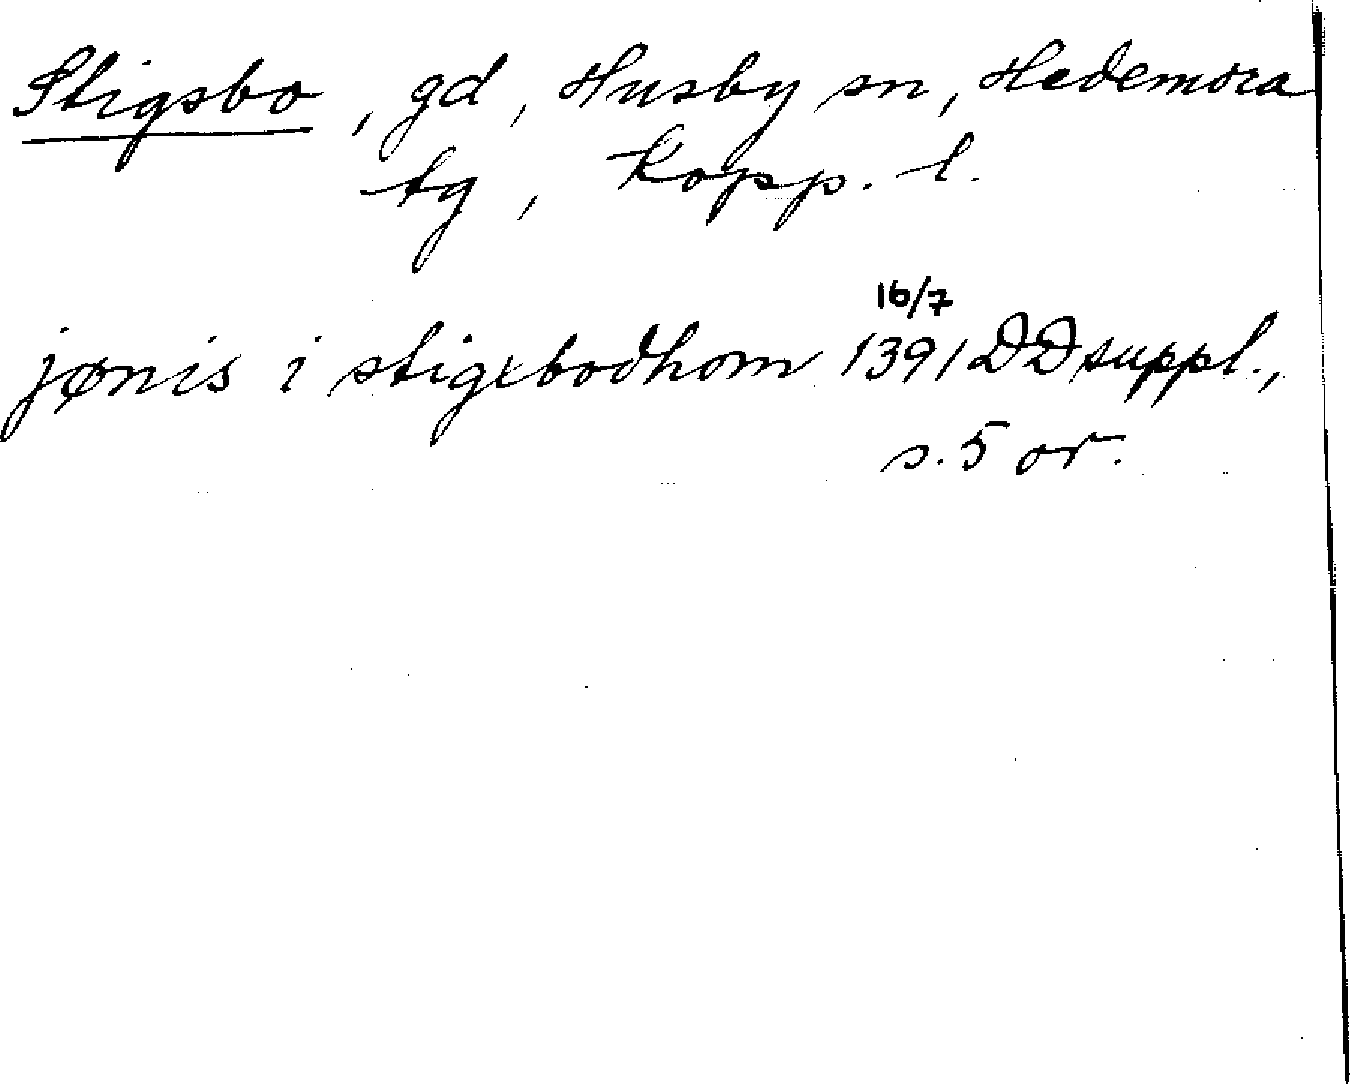 Stigsbo, gd, Husby sn, Hedemora
tg, Kopp. l.
16/7
jønis i stigxbodhom 1391 DD suppl.,
s. 5 or.